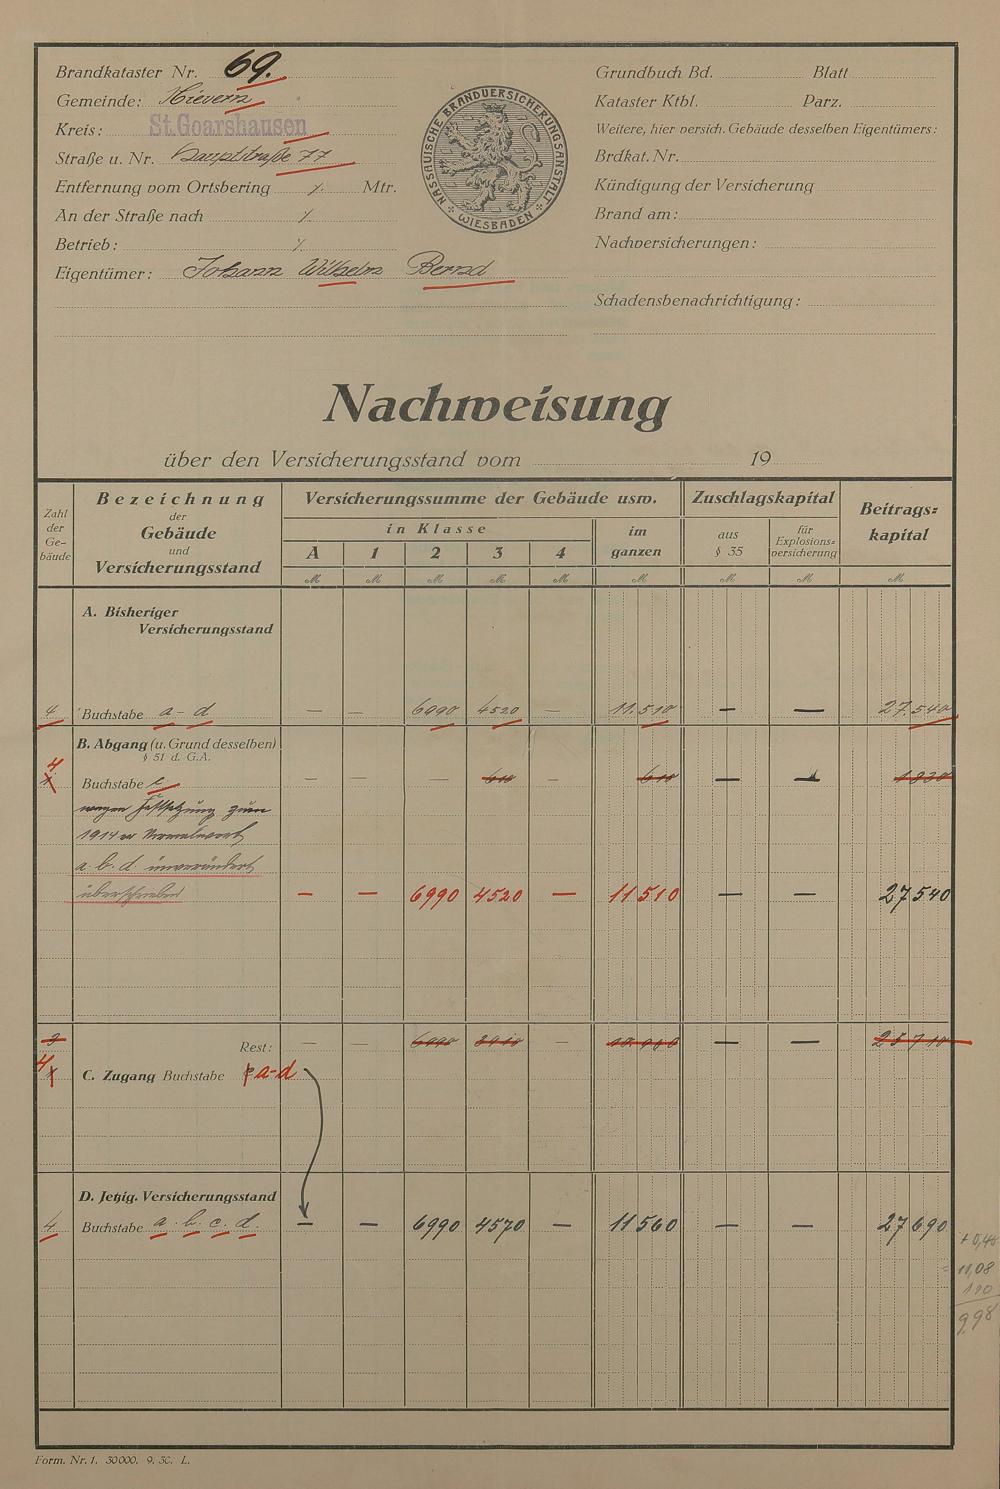 Brandkataster Nr. 69.
Gemeinde: Nievern
Kreis: St. Goarshausen
Straße u. Nr. Hauptstraße 77
Entfernung vom Ortsbering ⁒ Mtr.
An der Straße nach ⁒
Betrieb: ⁒
Eigentümer: Johann Wilhelm Bernd
NASSAUISCHE BRANDVERSICHERUNGSANSTALT
* WIESBADEN *
Grundbuch Bd. Blatt
Kataster Ktbl. Parz.
Weitere, hier versich. Gebäude desselben Eigentümers:
Brdkat. Nr.
Kündigung der Versicherung
Brand am:
Nachversicherungen:
Schadensbenachrichtigung:
Nachweisung
über den Versicherungsstand vom 19
Zahl der Ge-bäude
Bezeichnung der Gebäude und Versicherungsstand
Versicherungssumme der Gebäude usw.
in Klasse
A 1 2 3 4
im ganzen
Zuschlagskapital
aus § 35
für Explosions-versicherung
Beitrags-kapital
M M M M M M M M M
A. Bisheriger
Versicherungsstand
4 Buchstabe a - d — — 6990 4520 — 11.510 — — 27.540
B. Abgang (u. Grund desselben)
§ 51 d. G.A.
4
1 Buchstabe c — — — 610 — 610 — — 1830
wegen Festsetzung zum
1914 er Normalwert
a. b. d. unverändert
überschrieben — — 6990 4520 — 11510 — — 27540
3 Rest: — — 6990 3910 — 10.900 — — 25710
4 1 C. Zugang Buchstabe c a-d
D. Jetzig. Versicherungsstand
4 Buchstabe a. b. c. d. — — 6990 4570 — 11560 — — 27690
+ 0,48
= 11,08
1 10
9.98
Form. Nr. 1. 30000. 9. 30. L.